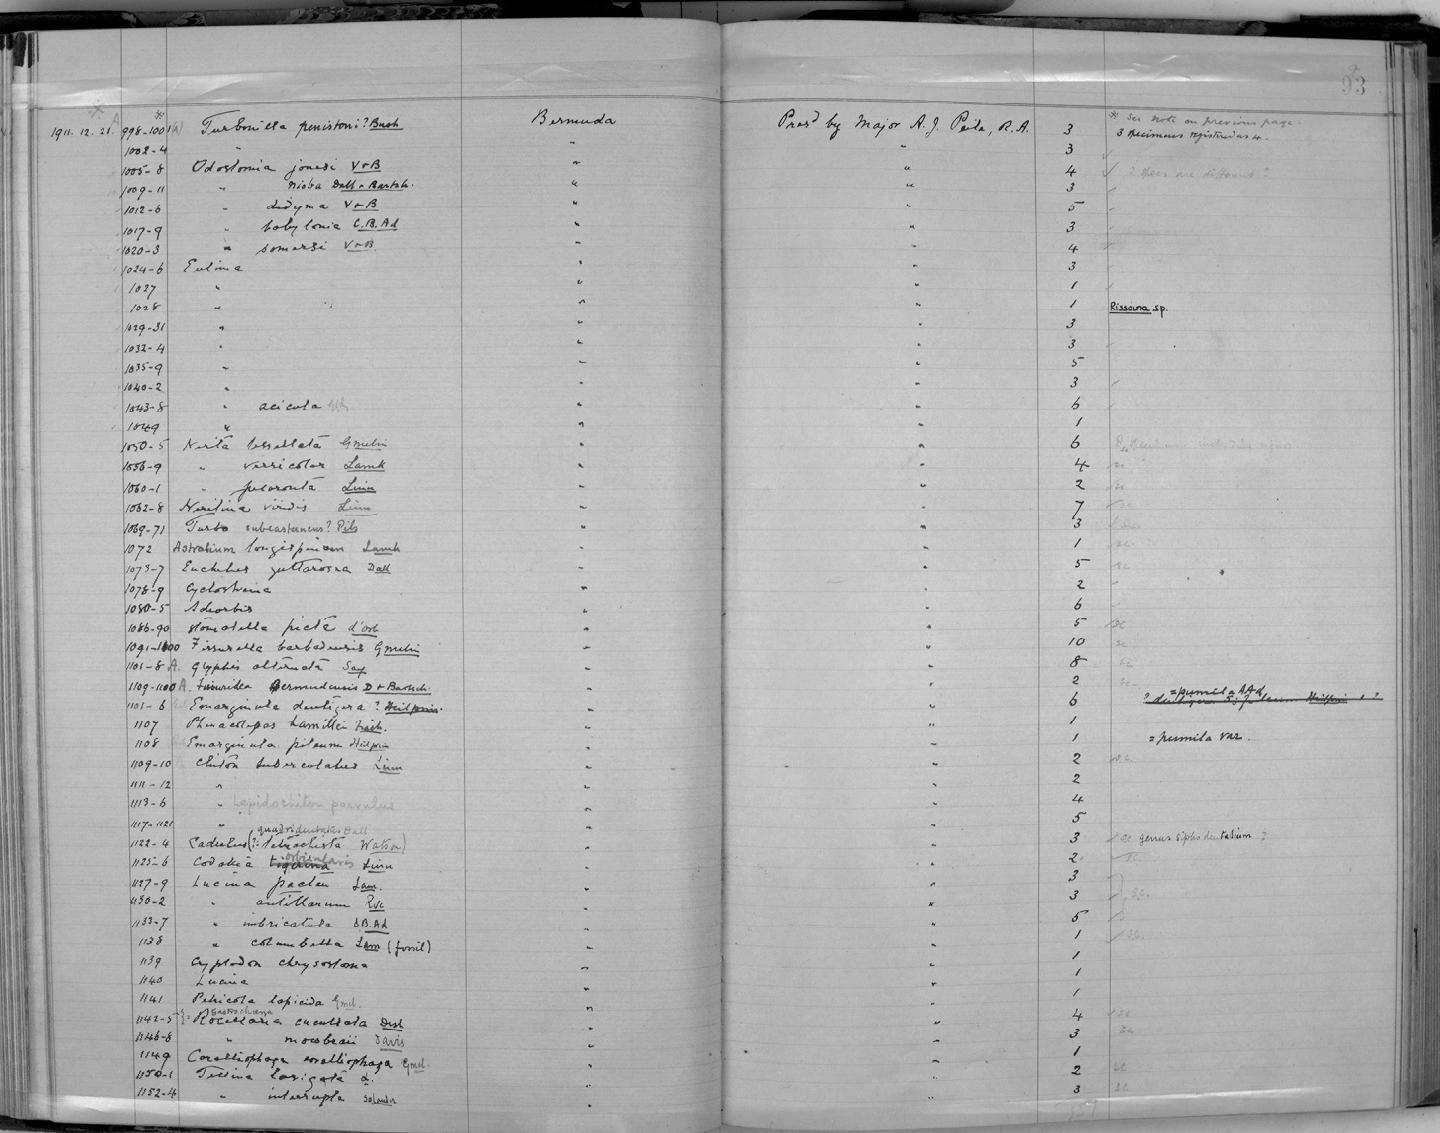 93
1911. 12. 21. 998-1001(A) Turbonilla penistoni? Bush Bermuda Presd by Major A. J. Peile, R.A. 3 * See note on previous page. 3 specimens registered as 4.
1002-4 " " " 3
1005-8 Odostomia jonesi V+B " " 4 2 spec are different?
1009-11 " nioba Dall + Bartsch. " " 3
1012-6 " didyma V+B " " 5
1017-9 " babylonia C.B.Ad " " 3
1020-3 " somersi V+B. " " 4
1024-6 Eulima " " 3
1027 " " " 1
1028 " " " 1 Rissoina sp.
1029-31 " " " 3
1032-4 " " " 3
1035-9 " " " 5
1040-2 " " " 3
1043-8 " acicula " " 6
1049 " " " 1
1050-5 Nerita tessellata Gmelin " " 6
1056-9 " versicolor Lamk " " 4
1060-1 " peloronta Linn " " 2
1062-8 Neritina viridis Linn " " 7
1069-71 Turbo subcastaneus? Pils " " 3
1072 Astralium longispinum Lamk " " 1
1073-7 Euchelus guttarosea Dall " " 5
1078-9 Cyclostrema " " 2
1080-5 Adeorbis " " 6
1086-90 Stomatella picta d'Orb " " 5 sc
1091-1100 Fissurella barbadensis Gmelin " " 10 sc
1101-8 A. Glyphis alternata Say " " 8 sc
1109-1100 A. Fissuridea Bermudensis D + Bartsch. " " 2 sc
1101-6 Emarginula dentigera? Heilprin. " " 6 = pumila A.Ad
1107 Phenacolepas hamillei Fisch. " " 1
1108 Emarginula pileum Heilprin " " 1 = pumila var.
1109-10 Chiton tuberculatus Linn " " 2 sc.
1111-12 " " " 2
1113-6 " Lepidochiton parvulus " " 4
1117-1121 " " " 5
quadridentatus Dall
1122-4 Cadulus (?= tetraschista Watson) " " 3 sc genus Siphodentalium?
1125-6 Codakia tigerina orbicularis Linn " " 2 sc.
1127-9 Lucina pecten Lam. " " 3
1130-2 " antillarum Rve " " 3 sc.
1133-7 " imbricatula C.B.Ad " " 5
1138 " columbella Lam (fossil) " " 1 sc.
1139 Cryptodon chrysostoma " " 1
1140 Lucina " " 1
1141 Petricola lapicida Gmel. " " 1
Gastrochaena
1142-5 = Rocellaria cucullata Desh " " 4 sc
1146-8 " mowbraii Davis " " 3 sc
1149 Coralliophaga coralliophaga Gmel. " " 1
1150-1 Tellina laevigata L. " " 2 sc
1152-4 " interrupta Solander " " 3 sc